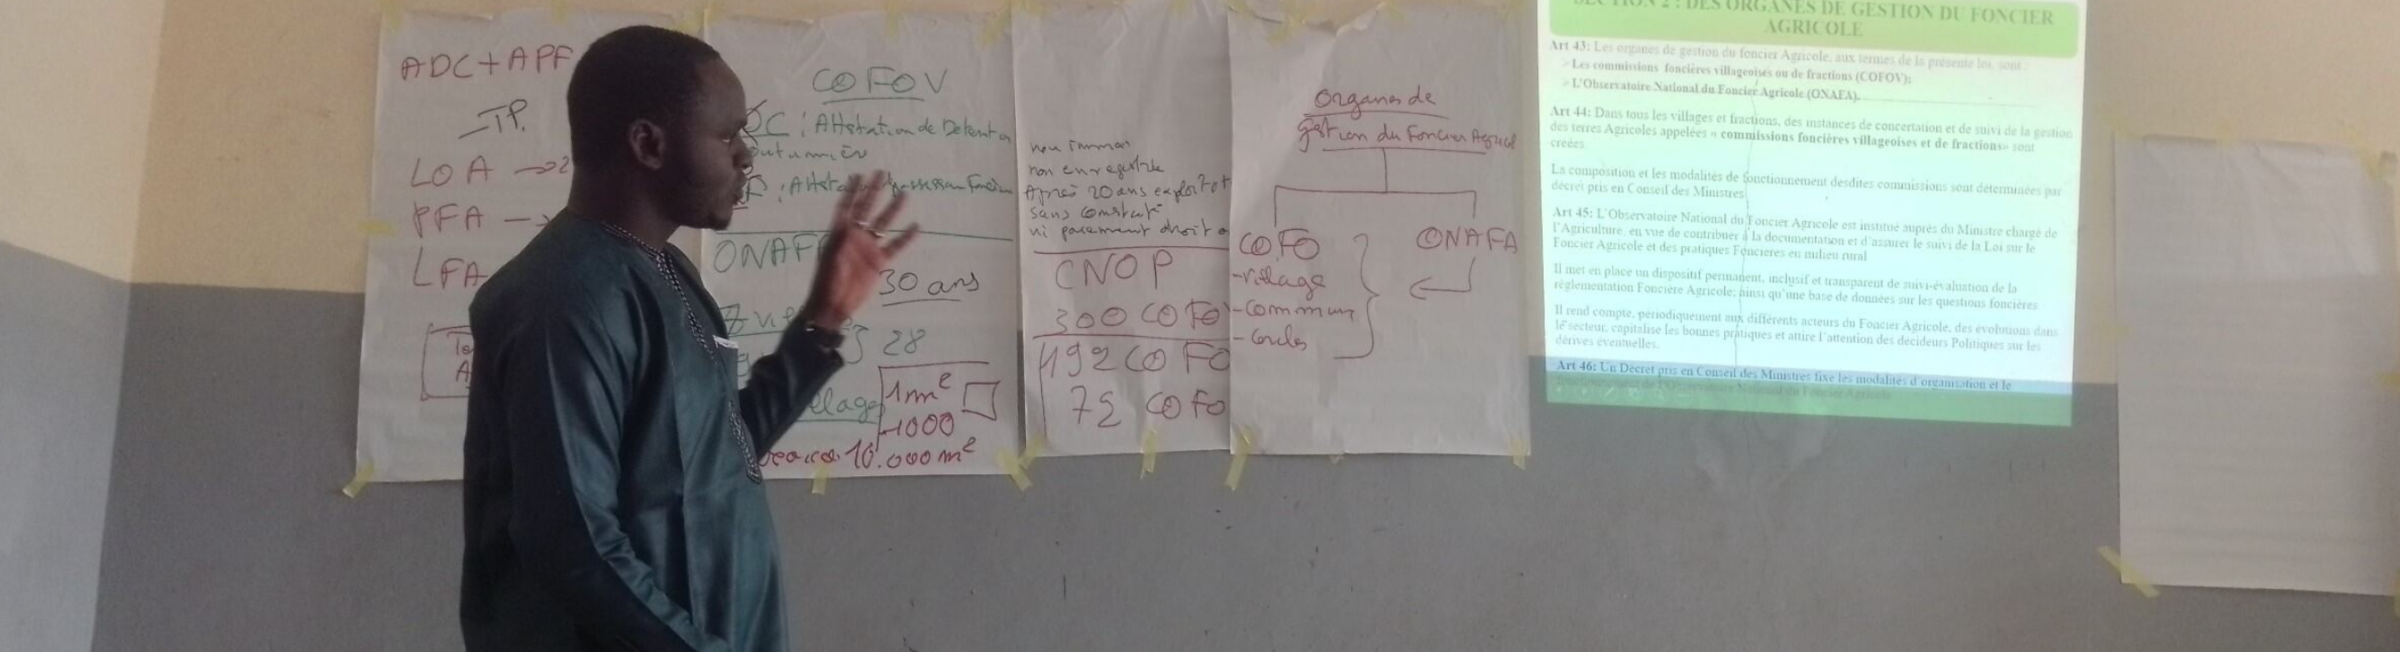 ADC+APF
-TP.
LOA → 2
PFA →
LFA
COFOV
DC : Attestation de Detention
outumière
: Attsta
ONAFA
30 ans
28
1m²
1000
10.000m²
non imma
non enregistré
Après 20 ans exploitat
sans constat
ni paiement droit
CNOP
300 COFO
492 COFO
72 COFO
Organes de
gestion du Foncier Agricol
COFO
-village
-Commun
-Cercles
ONAFA
SECTION 2 : DES ORGANES DE GESTION DU FONCIER
AGRICOLE
Art 43: Les organes de gestion du foncier Agricole, aux termes de la présente loi, sont :
Les commissions foncières villageoises ou de fractions (COFOV);
L'Observatoire National du Foncier Agricole (ONAFA).
Art 44: Dans tous les villages et fractions, des instances de concertation et de suivi de la gestion
des terres Agricoles appelées « commissions foncières villageoises et de fractions» sont
créées.
La composition et les modalités de fonctionnement desdites commissions sont déterminées par
décret pris en Conseil des Ministres
Art 45: L'Observatoire National du Foncier Agricole est institué auprès du Ministre chargé de
l'Agriculture, en vue de contribuer à la documentation et d'assurer le suivi de la Loi sur le
Foncier Agricole et des pratiques Foncières en milieu rural
Il met en place un dispositif permanent, inclusif et transparent de suivi-évaluation de la
réglementation Foncière Agricole; ainsi qu'une base de données sur les questions foncières
Il rend compte, périodiquement aux différents acteurs du Foncier Agricole, des évolutions dans
le secteur, capitalise les bonnes pratiques et attire l'attention des décideurs Politiques sur les
dérives éventuelles.
Art 46: Un Décret pris en Conseil des Ministres fixe les modalités d'organisation et le
fonctionnement de l'Observatoire National du Foncier Agricole